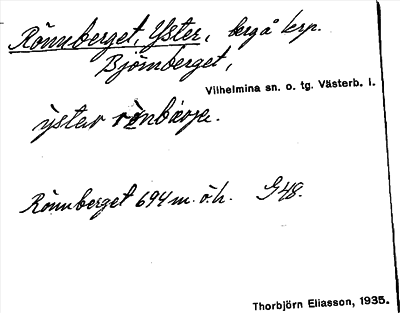 Rönnberget, Yster, berg å krp.
Björnberget,
Vilhelmina sn. o. tg. Västerb. l.
yster
Rönnberget 694 m. ö. h. G 48.
Thorbjörn Eliasson, 1935.